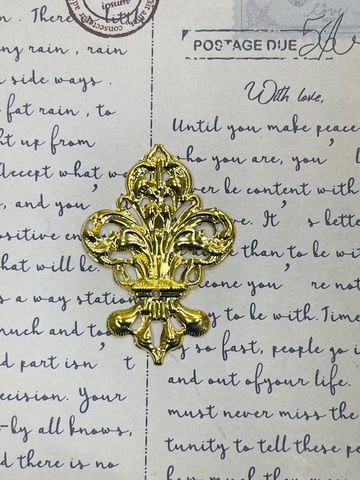 ipsum
n. There little
ng rain, rain
side ways.
fat rain, to
ht up from
Accept what we
, and you'
ositive en
hat will be.
s a way station
much and too
d part isn't
ecision. Your
-by all knows,
d there is no
love
POSTAGE DUE
With love,
Until you make peace
ho you are, you'
er be content with
e. It's bette
e than to be wi
eone you're not
y to be with. Time
s so fast, people go i
and out of your life.
must never miss the
tunity to tell these pe
how much they mean